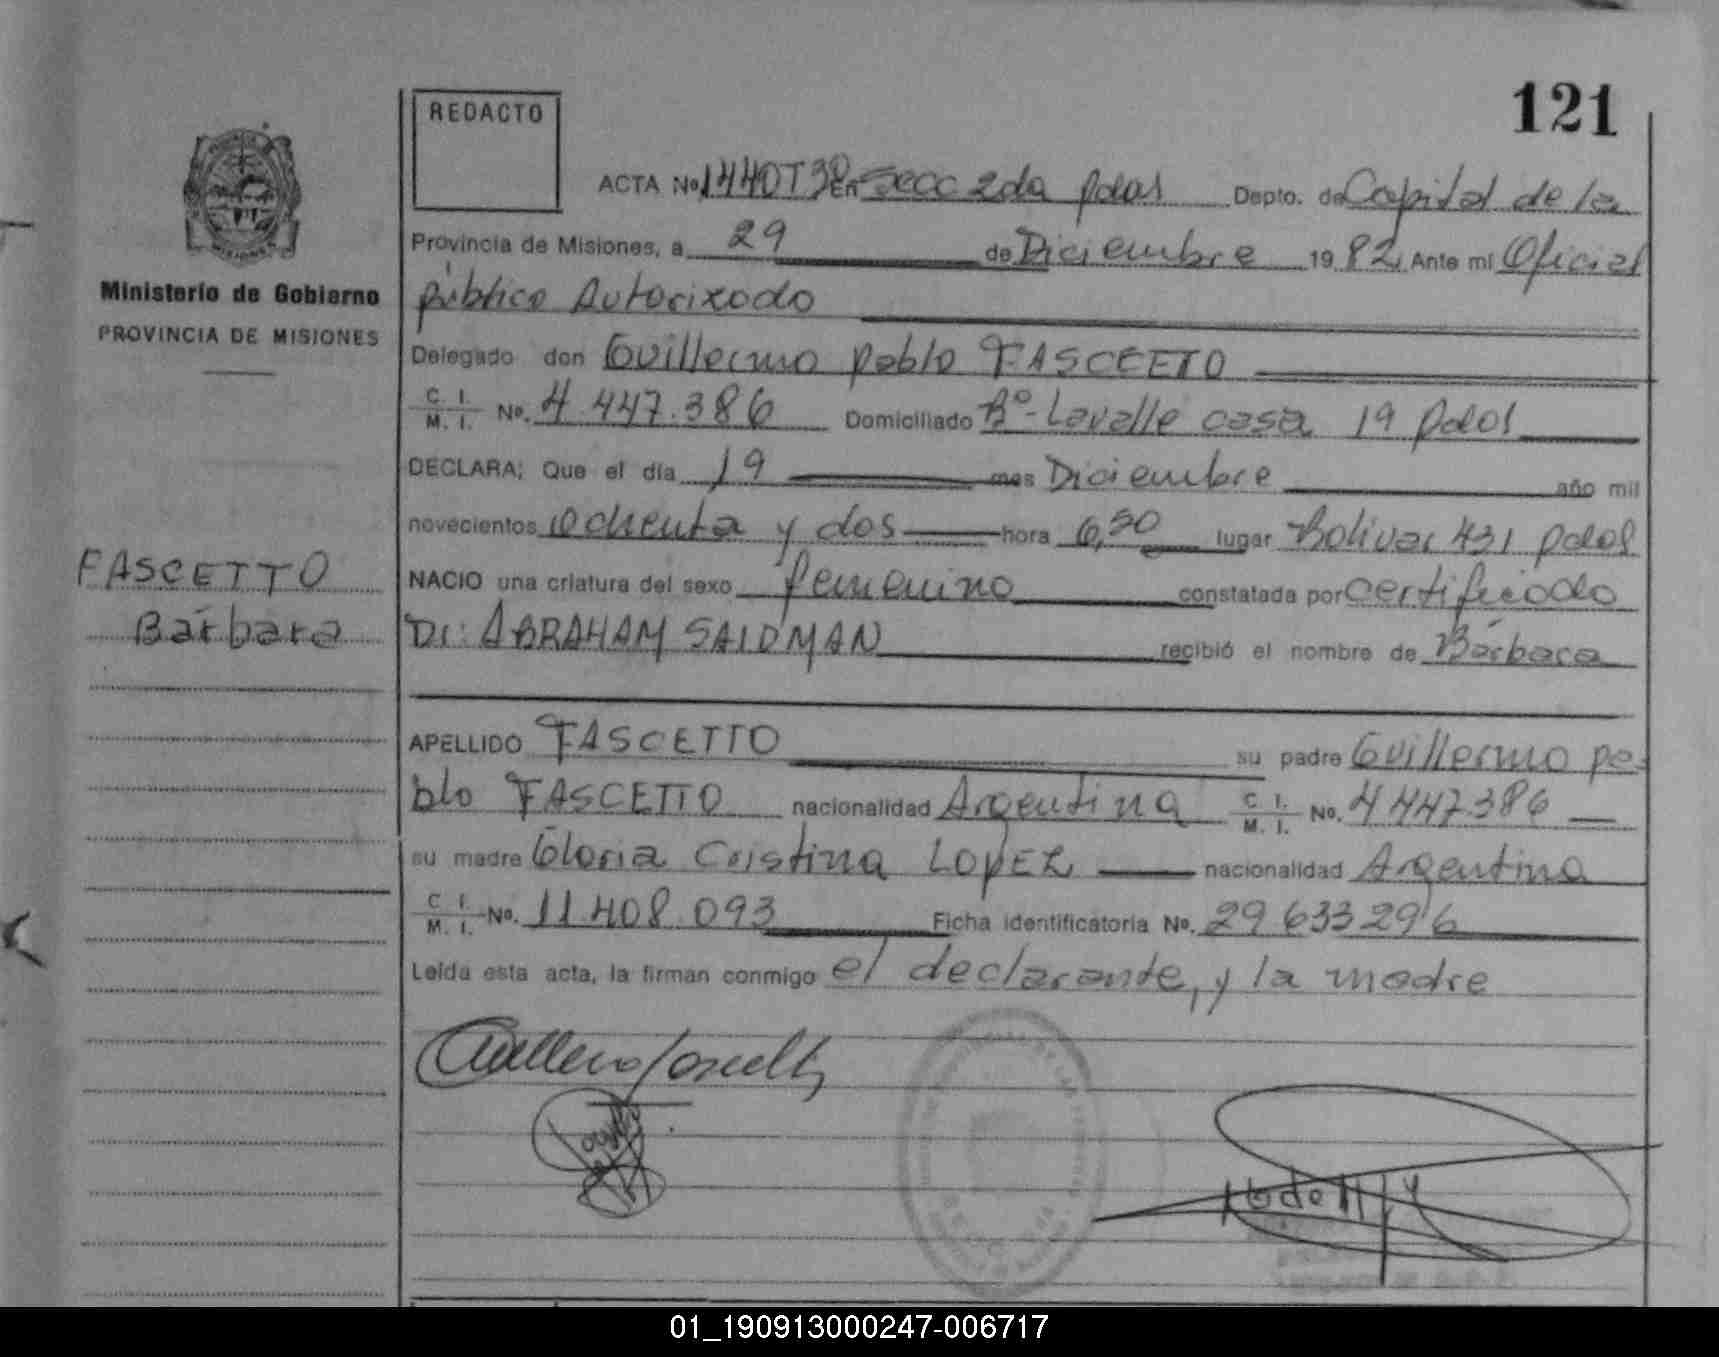 121
REDACTO
ACTA Nº 1440T3º En Secc 2da Pdas Depto. de Capital de la
Provincia de Misiones, a 29 de Diciembre 1982 Ante mi Oficial
Ministerio de Gobierno
PROVINCIA DE MISIONES
público Autorizado
Delegado don Guillermo Pablo FASCETTO
C. I. M. I. Nº. 4.447.386 Domiciliado Bº-Lavalle casa 19 Pdas
DECLARA; Que el día 19 mes Diciembre año mil
novecientos ochenta y dos hora 6,50 lugar Bolivar 431 Pdas
FASCETTO
Bárbara
NACIO una criatura del sexo femenino constatada por certificado
Dr: ABRAHAM SAIDMAN recibió el nombre de Bárbara
APELLIDO FASCETTO su padre Guillermo Pa-
blo FASCETTO nacionalidad Argentina C. I. M. I. Nº. 4.447.386
su madre Gloria Cristina LOPEZ nacionalidad Argentina
C. I. M. I. Nº. 11.408.093 Ficha identificatoria Nº. 29 633 296
Leída esta acta, la firman conmigo el declarante, y la madre
01_190913000247-006717